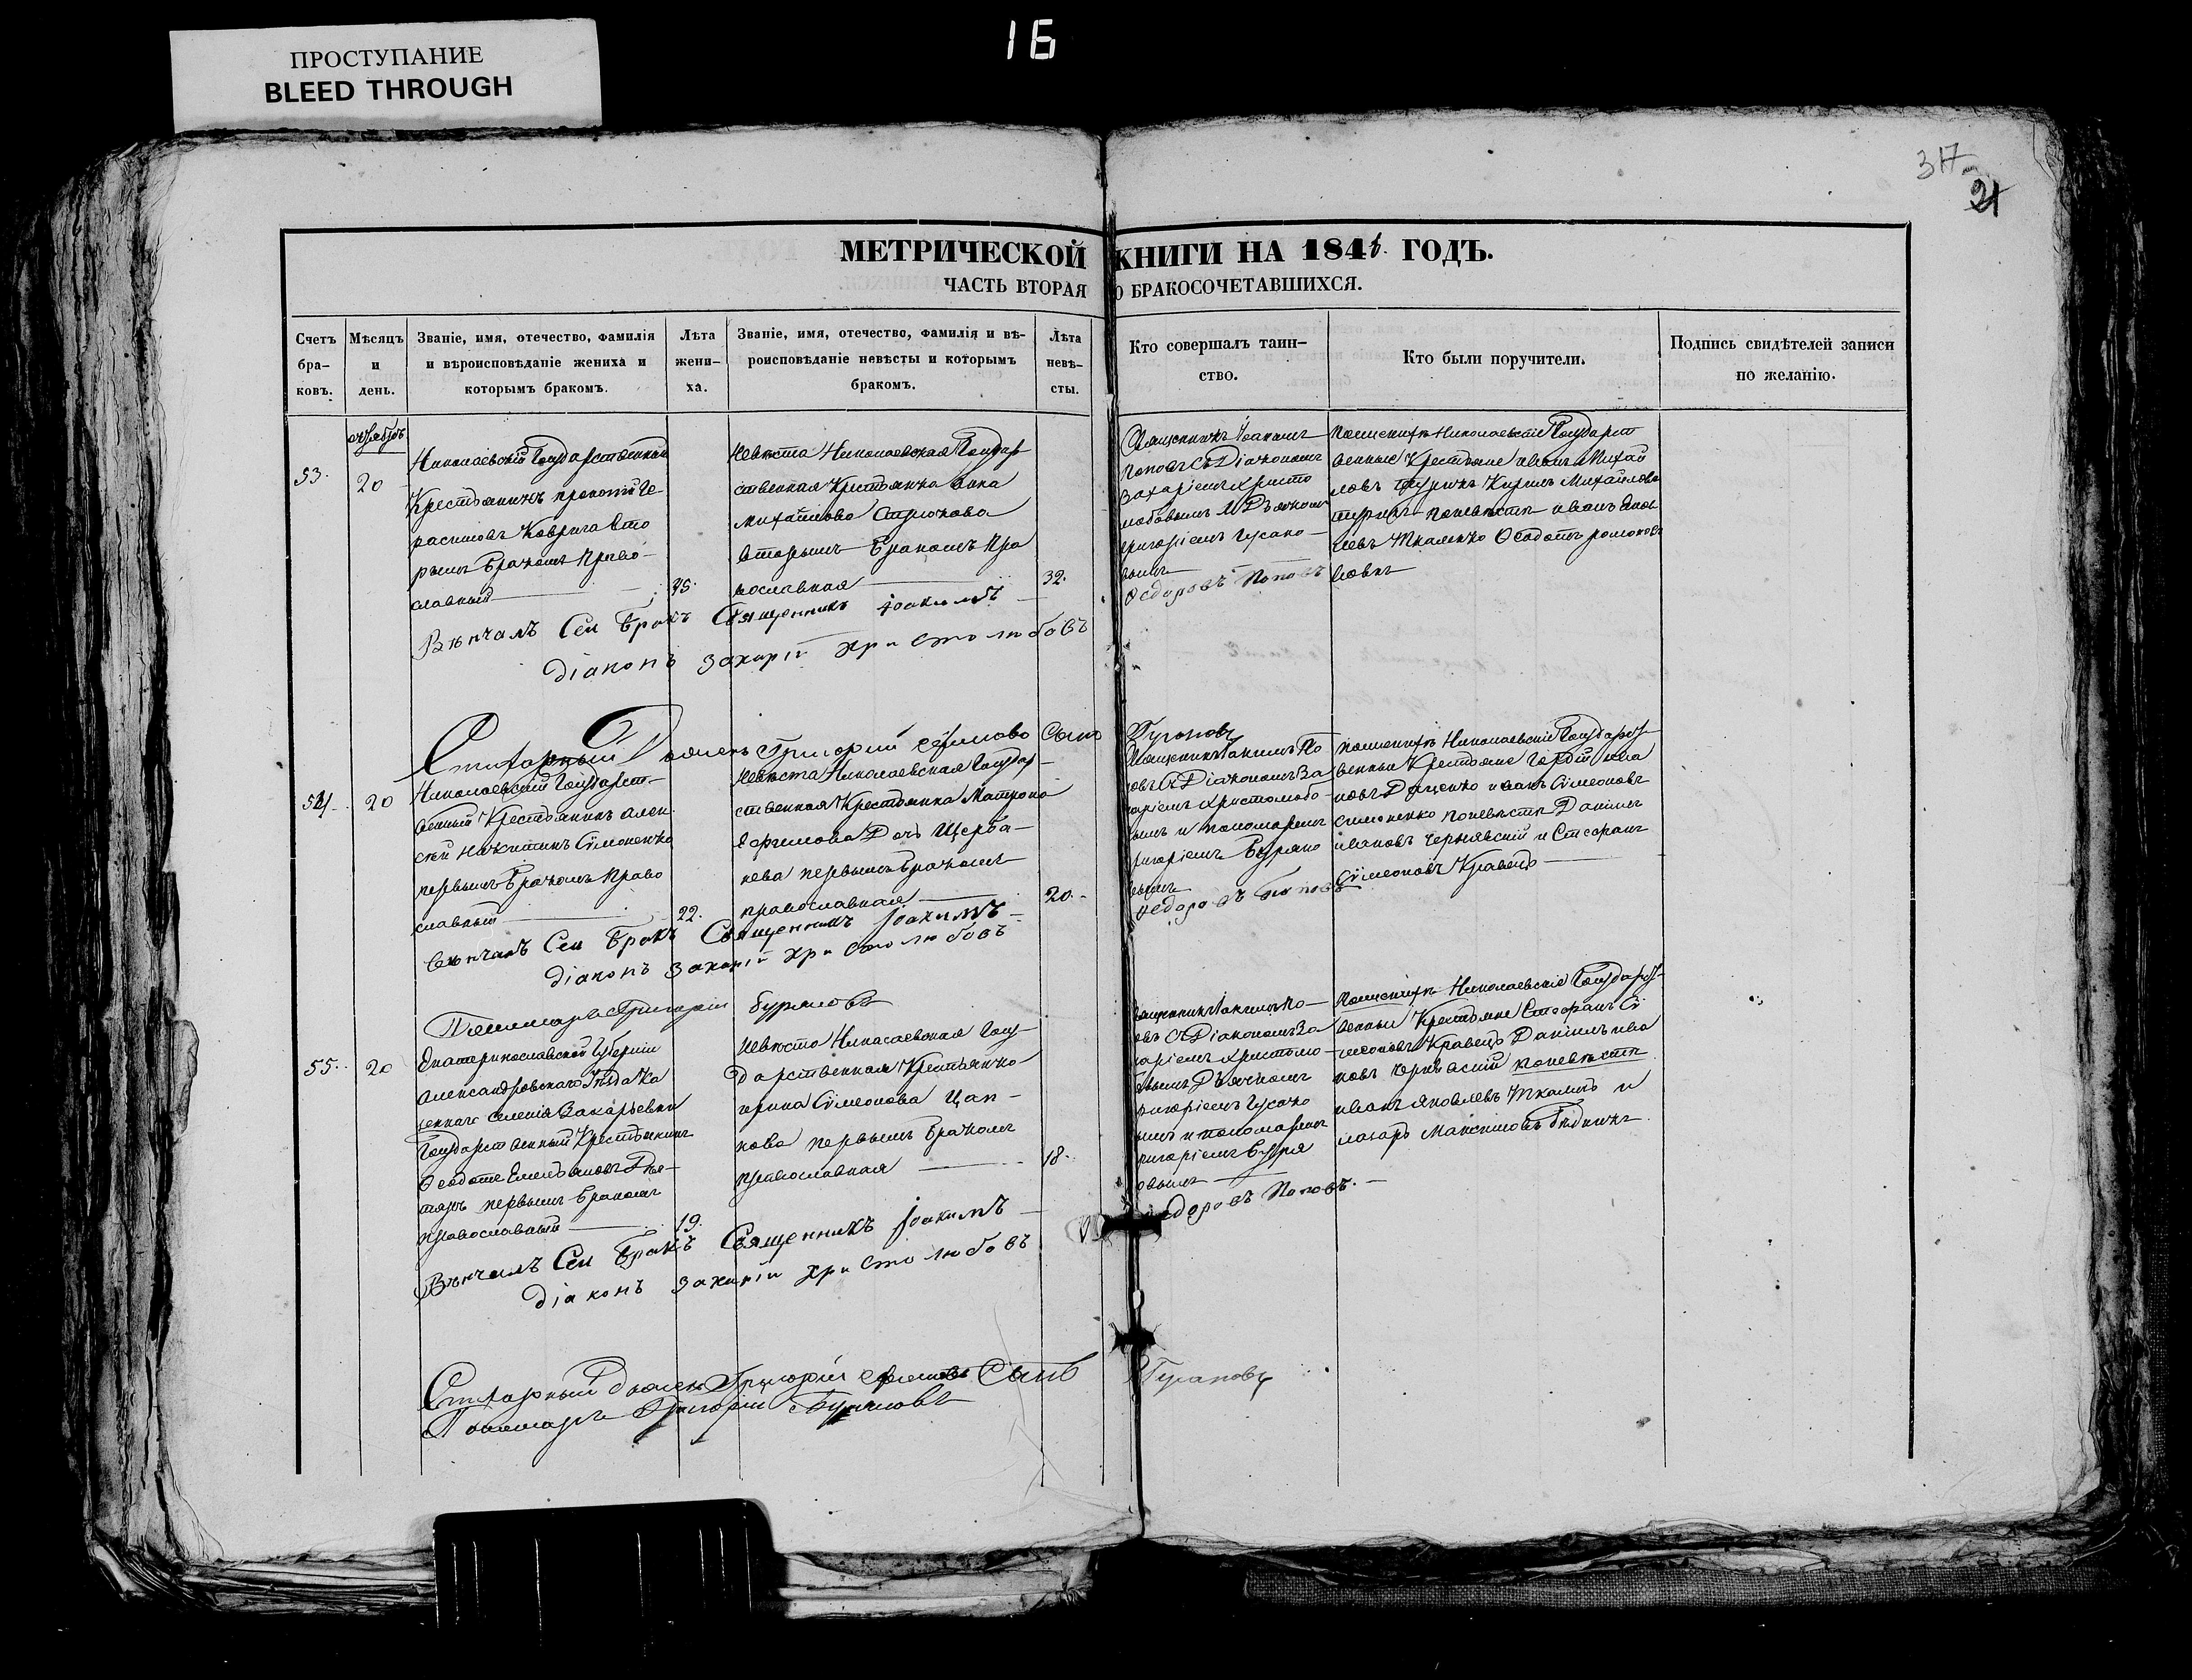 16
ПРОСТУПАНИЕ
BLEED THROUGH
317
21
МЕТРИЧЕСКОЙ КНИГИ НА 184 ГОДЪ.
ЧАСТЬ ВТОРАЯ О БРАКОСОЧЕТАВШИХСЯ.
Счетъ бра-
ковъ.
Мѣсяцъ
и
день.
Званіе, имя, отечество, фамилія
и вѣроисповѣданіе жениха и
которымъ бракомъ.
Лѣта
жени-
ха.
Званіе, имя, отечество, фамилія и вѣ-
роисповѣданіе невѣсты и которымъ
бракомъ.
Лѣта
невѣ-
сты.
Кто совершалъ таин-
ство.
Кто были поручители.
Подпись свидѣтелей записи
по желанію.
октябрь
53.
20
Николаевскій Государственный
Крестьянинъ прокопій Ге-
расимовъ Коврига вто
рымъ Бракомъ Право-
славный
Невѣста Николаевская Государ
ственная Крестьянка Анна
Михайлова
вторымъ Бракомъ Пра
вославная
32.
Священникъ Іоакимъ
Поповъ Съ Діакономъ
Захаріемъ Христо
любовымъ И Дьячкомъ
григоріемъ Гусако-
вымъ
Ѳедоровъ Поповъ
Поженихѣ Николаевскіе Государст
венные Крестьяне иванъ Михай
ловъ Кирилъ Михайловъ
поневѣсти иванъ Яков
левъ Ткаленко Ѳеодотъ
Вѣнчалъ Сей Бракъ Священникъ Іоакимъ
Діаконъ Захарій Христолюбовъ
Григорій Ефимовъ Сынъ
54.
20
Николаевскій Государст-
венный Крестьянинъ Алек
сѣй Никитинъ Симоненко
первымъ Бракомъ Право
славный
22.
Невѣста Николаевская Государ-
ственная Крестьянка Матрона
Ефимова Дочь Щерба-
нева первымъ Бракомъ
православная
20.
Священникъ Іоакимъ По
повъ Съ Діакономъ За
харіемъ Христолюбо-
вымъ и пономаремъ
григоріемъ
вымъ
Ѳедоровъ Поповъ
Поженихѣ Николаевскіе Государст
венные Крестьяне Гордій ива
новъ Даценко иванъ Симеоновъ
симоненко поневѣсти Даніилъ
ивановъ Чернявскій и Стефанъ
Симеоновъ Кравецъ
Вѣнчалъ Сей Бракъ Священникъ Іоакимъ
Діаконъ Захарій Христолюбовъ
Пономарь Григорій
55.
20
Екатеринославской Губерніи
Александровскаго Уѣзда Ка
зеннаго селенія Захарьевки
Государственный Крестьянинъ
Ѳеодотъ Емельяновъ Дѣг-
тярь первымъ Бракомъ
православный
19.
Невѣста Николаевская Госу-
дарственная Крестьянка
ирина Симеонова Цап-
кова первымъ Бракомъ
православная
18.
Священникъ Іоакимъ По-
повъ Съ Діакономъ За
харіемъ Христолю-
бовымъ Дьячкомъ
григоріемъ Гусако
вымъ и пономаремъ
григоріемъ
Ѳедоровъ Поповъ.
Поженихѣ Николаевскіе Государст
венные Крестьяне Стефанъ Си
меоновъ Кравецъ Даніилъ ива
новъ Чернявскій поневѣсти
иванъ Яковлевъ Ткаленко и
лазарь Максимовъ
Вѣнчалъ Сей Бракъ Священникъ Іоакимъ
Діаконъ Захарій Христолюбовъ
Григорій Ефимовъ Сынъ
Пономарь Григорій